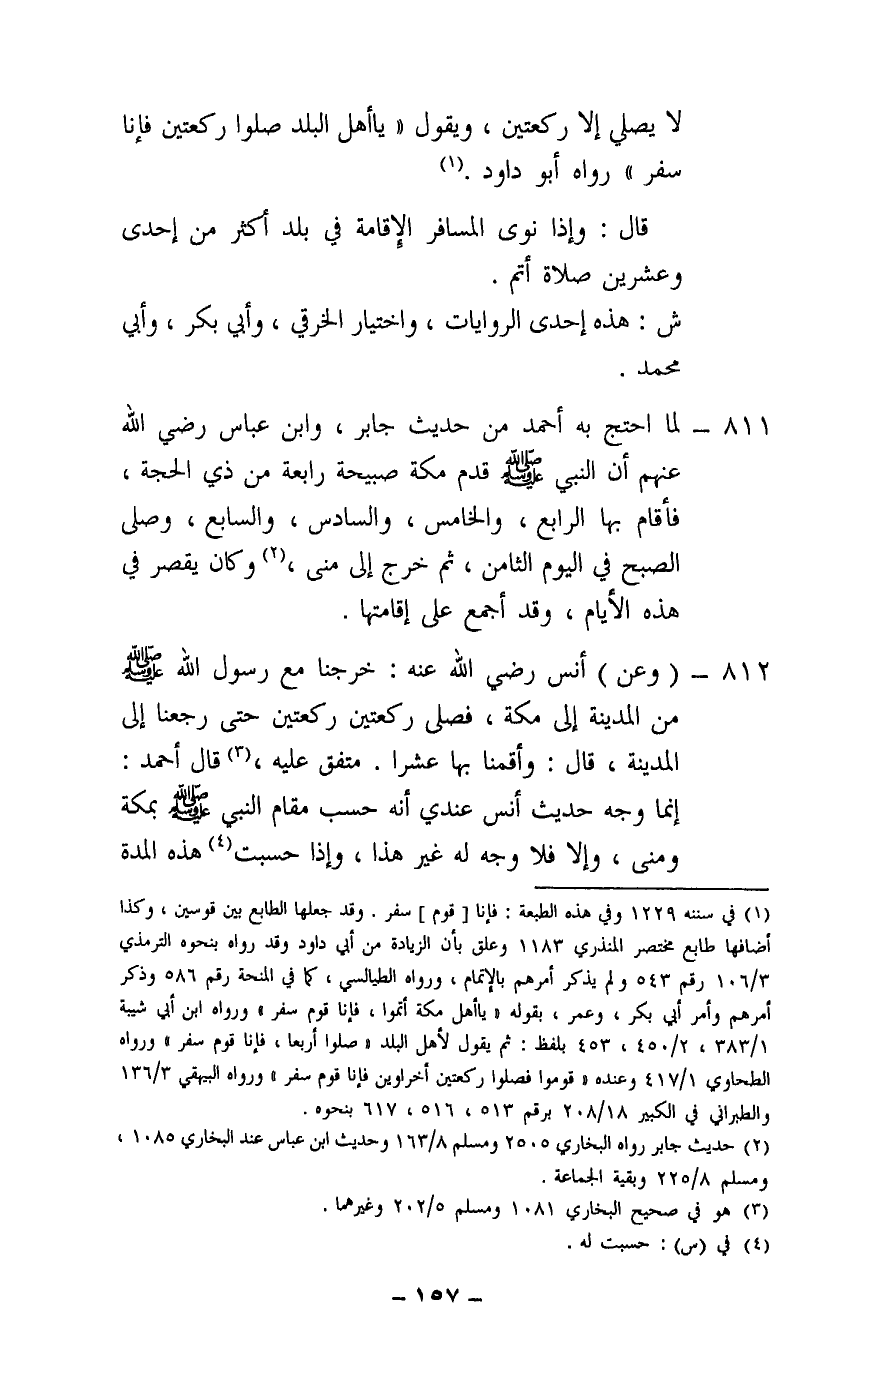 لا يصلي إلا ركعتين ، ويقول « ياأهل البلد صلوا ركعتين فإنا
سفر » رواه أبو داود .(١)
قال : وإذا نوى المسافر الإقامة في بلد أكثر من إحدى
وعشرين صلاة أتم .
ش : هذه إحدى الروايات ، واختيار الخرقي ، وأبي بكر ، وأبي
محمد .
٨١١ – لما احتج به أحمد من حديث جابر ، وابن عباس رضي الله
عنهم أن النبي ﷺ قدم مكة صبيحة رابعة من ذي الحجة ،
فأقام بها الرابع ، والخامس ، والسادس ، والسابع ، وصلى
الصبح في اليوم الثامن ، ثم خرج إلى منى ،(٢) وكان يقصر في
هذه الأيام ، وقد أجمع على إقامتها .
٨١٢ – ( وعن ) أنس رضي الله عنه : خرجنا مع رسول الله ﷺ
من المدينة إلى مكة ، فصلى ركعتين ركعتين حتى رجعنا إلى
المدينة ، قال : وأقمنا بها عشرا . متفق عليه ،(٣) قال أحمد :
إنما وجه حديث أنس عندي أنه حسب مقام النبي ﷺ بمكة
ومنى ، وإلا فلا وجه له غير هذا ، وإذا حسبت(٤) هذه المدة
(١) في سننه ١٢٢٩ وفي هذه الطبعة : فإنا [ قوم ] سفر . وقد جعلها الطابع بين قوسين ، وكذا
أضافها طابع مختصر المنذري ١١٨٣ وعلق بأن الزيادة من أبي داود وقد رواه بنحوه الترمذي
١٠٦/٣ رقم ٥٤٣ ولم يذكر أمرهم بالإتمام ، ورواه الطيالسي ، كما في المنحة رقم ٥٨٦ وذكر
أمرهم وأمر أبي بكر ، وعمر ، بقوله « ياأهل مكة أتموا ، فإنا قوم سفر » ورواه ابن أبي شيبة
٣٨٣/١ ، ٤٥٠/٢ ، ٤٥٣ بلفظ : ثم يقول لأهل البلد « صلوا أربعا ، فإنا قوم سفر » ورواه
الطحاوي ٤١٧/١ وعنده « قوموا فصلوا ركعتين أخراوين فإنا قوم سفر » ورواه البيهقي ١٣٦/٣
والطبراني في الكبير ٢٠٨/١٨ برقم ٥١٣ ، ٥١٦ ، ٦١٧ بنحوه .
(٢) حديث جابر رواه البخاري ٢٥٠٥ ومسلم ١٦٣/٨ وحديث ابن عباس عند البخاري ١٠٨٥ ،
ومسلم ٢٢٥/٨ وبقية الجماعة .
(٣) هو في صحيح البخاري ١٠٨١ ومسلم ٢٠٢/٥ وغيرهما .
(٤) في (س) : حسبت له .
– ١٥٧ –